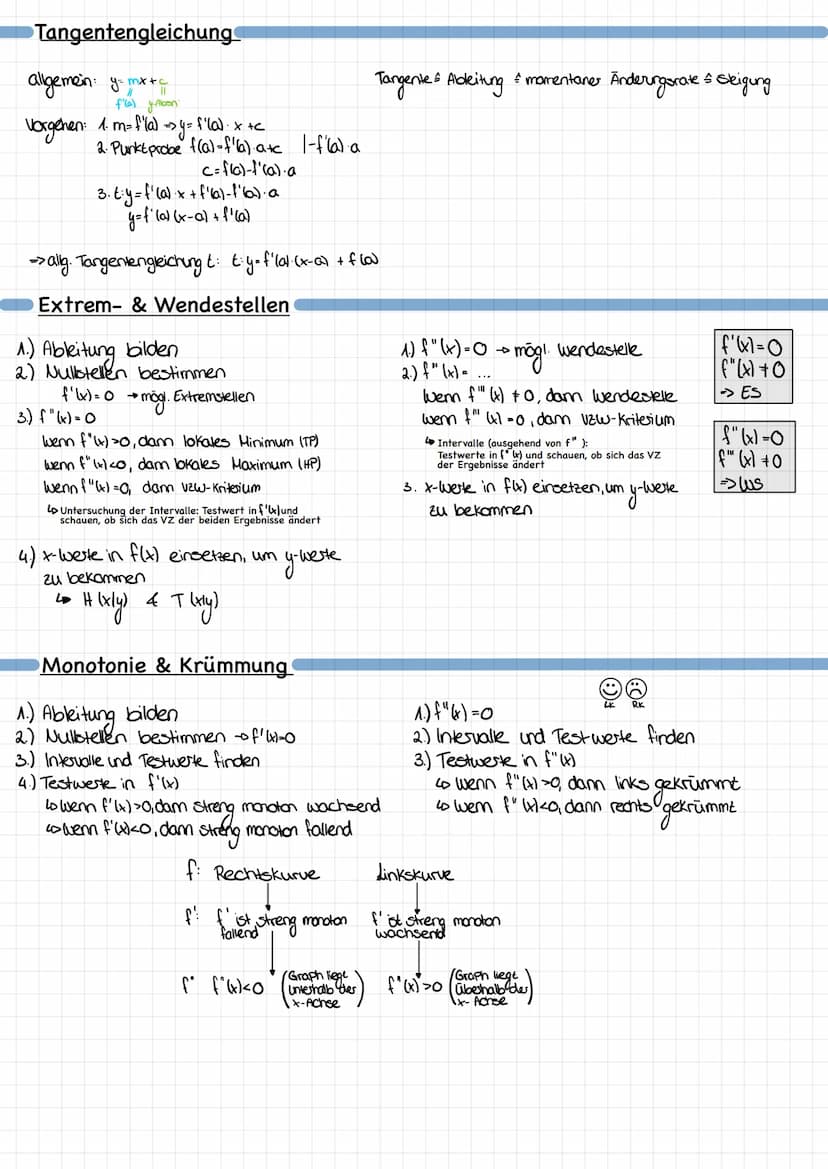 Tangentengleichung
allgemein: y=mx+c
f'(a) y-Absn
Tangente ≙ Ableitung ≙ momentaner Änderungsrate ≙ Steigung
Vorgehen: 1. m=f'(a) → y=f'(a)·x+c
2. Punktprobe f(a)=f'(a)·a+c |-f'(a)·a
c=f(a)-f'(a)·a
3. t:y=f'(a)·x+f'(a)-f'(a)·a
y=f'(a)(x-a)+f'(a)
→ allg. Tangentengleichung t: t:y=f'(a)·(x-a)+f(a)
Extrem- & Wendestellen
1.) Ableitung bilden
2.) Nullstellen bestimmen
f'(x)=0 → mögl. Extremstellen
3.) f"(x)=0
wenn f"(x)>0, dann lokales Minimum (TP)
wenn f"(x)<0, dann lokales Maximum (HP)
wenn f"(x)=0, dann VZW-Kriterium
↳ Untersuchung der Intervalle: Testwert in f'(x) und
schauen, ob sich das VZ der beiden Ergebnisse ändert
4.) x-Werte in f(x) einsetzen, um y-Werte
zu bekommen
↳ H(x|y) & T(x|y)
1.) f"(x)=0 → mögl. Wendestelle
2.) f"'(x)= ...
wenn f"'(x)≠0, dann Wendestelle
wenn f"'(x)=0, dann VZW-Kriterium
↳ Intervalle (ausgehend von f"):
Testwerte in f"(x) und schauen, ob sich das VZ
der Ergebnisse ändert
3. x-Werte in f(x) einsetzen, um y-Werte
zu bekommen
f'(x)=0
f"(x)≠0
→ ES
f"(x)=0
f"'(x)≠0
⇒ WS
Monotonie & Krümmung
1.) Ableitung bilden
2.) Nullstellen bestimmen → f'(x)=0
3.) Intervalle und Testwerte finden
4.) Testwerte in f'(x)
↳ wenn f'(x)>0, dann streng monoton wachsend
↳ wenn f'(x)<0, dann streng monoton fallend
LK RK
1.) f"(x)=0
2.) Intervalle und Testwerte finden
3.) Testwerte in f"(x)
↳ wenn f"(x)>0, dann links gekrümmt
↳ wenn f"(x)<0, dann rechts gekrümmt
f: Rechtskurve Linkskurve
f': f' ist streng monoton
fallend
f' ist streng monoton
wachsend
f" f"(x)<0 (Graph liegt
unterhalb der
x-Achse)
f"(x)>0 (Graph liegt
überhalb der
x-Achse)